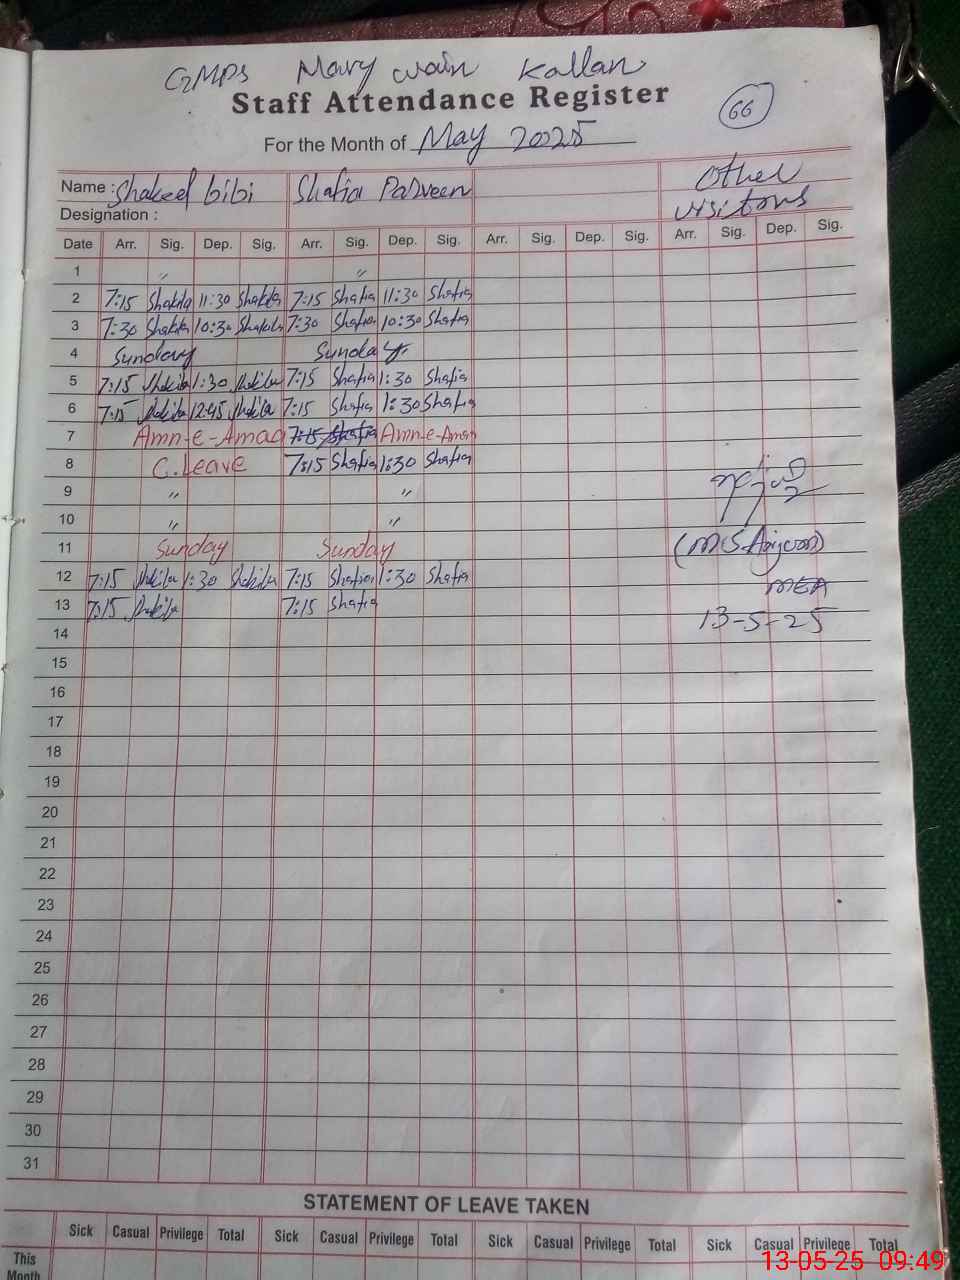 GMPS Mary wain Kallan
Staff Attendance Register
66
For the Month of May 2025
Name : Shakeel bibi Shafia Parveen Other
Designation : visitors
Date Arr. Sig. Dep. Sig. Arr. Sig. Dep. Sig. Arr. Sig. Dep. Sig. Arr. Sig. Dep. Sig.
1 " "
2 7:15 Shakila 11:30 Shakila 7:15 Shafia 11:30 Shafia
3 7:30 Shakila 10:30 Shakila 7:30 Shafia 10:30 Shafia
4 Sunday Sunday
5 7:15 Shakila 1:30 Shakila 7:15 Shafia 1:30 Shafia
6 7:15 Shakila 12:45 Shakila 7:15 Shafia 1:30 Shafia
7 Amn-e-Amaa 7:15 Shafia Amn-e-Aman
8 C.Leave 7:15 Shafia 1:30 Shafia
9 " "
10 " "
11 Sunday Sunday
12 7:15 Shakila 1:30 Shakila 7:15 Shafia 1:30 Shafia
MEA
13 7:15 Shakila 7:15 Shafia
13-5-25
14
15
16
17
18
19
20
21
22
23
24
25
26
27
28
29
30
31
STATEMENT OF LEAVE TAKEN
Sick Casual Privilege Total Sick Casual Privilege Total Sick Casual Privilege Total Sick Casual Privilege Total
This
Month
13-05-25 09:49